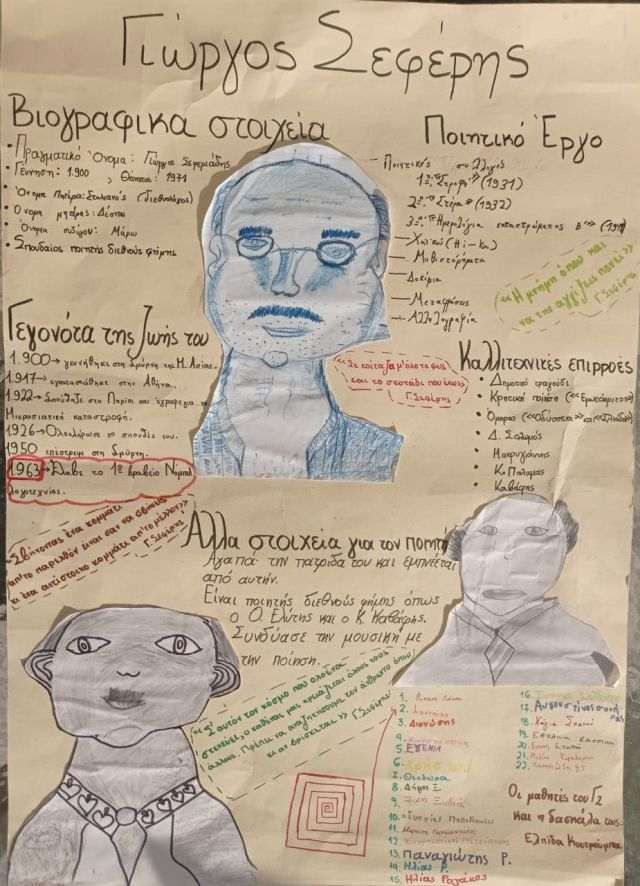 Γιώργος Σεφέρης
Βιογραφικα στοιχεία
• Πραγματικό Όνομα: Γιώργος Σεφεριάδης
• Γέννηση: 1.900 , Θάνατος: 1971
• Όνομα Πατέρα: Στυλιανός (διεθνολόγος)
• Όνομα μητέρας: Δέσπω
• Όνομα συζύγου: Μάρω
• Σπουδαίος ποιητής διεθνούς φήμης
Ποιητικό Έργο
Ποιητικές συλλογές
1η: "Στροφή" (1931)
2η: "Στέρνα" (1932)
3η: "Ημερολόγιο καταστρώματος Β'"
Χαϊκού (Hi-Ku)
Μυθιστορήματα
Δοκίμια
Μεταφράσεις
Αλληλογραφία
«Η μνήμη όπου και
να την αγγίξεις πονεί»
Γ. Σεφέρης
Γεγονότα της ζωής του
1.900→ γεννήθηκε στη Σμύρνη της Μ. Ασίας.
1.917→ εγκαταστάθηκε στην Αθήνα.
1.922→ Σπούδαζε στο Παρίσι και
Μικρασιατική καταστροφή.
1926→ Ολοκλήρωσε τις σπουδές του.
1950 επέστρεψε στη Σμύρνη.
1963→ Έλαβε το 1ο βραβείο Νόμπελ
λογοτεχνίας.
«Σε κοίταζα μ' όλο το φως
και το σκοτάδι που έχω»
Γ. Σεφέρης
Καλλιτεχνικές επιρροές
• Δημοτικό τραγούδι
• Κρητική ποίηση («Ερωτόκριτος»)
• Όμηρος («Οδύσσεια» και «Ιλιάδα»)
• Δ. Σολωμός
• Μακρυγιάννης
• Κ. Παλαμάς
• Καβάφης
«Σβήνοντας ένα κομμάτι
απ'το παρελθόν είναι σαν να σβήνεις
κι ένα αντίστοιχο κομμάτι απ'το μέλλον»
Γ. Σεφέρης
Άλλα στοιχεία για τον ποιητή
Αγαπά την πατρίδα του και εμπνέεται
από αυτήν.
Είναι ποιητής διεθνούς φήμης όπως
ο Ο. Ελύτης και ο Κ. Καβάφης.
Συνδύασε την μουσική με
την ποίηση.
«Σ' αυτόν τον κόσμο που ολοένα
στενεύει, ο καθένας μας χρειάζεται όλους τους
άλλους. Πρέπει να αναζητήσουμε τον άνθρωπο όπου
κι αν βρίσκεται.» Γ. Σεφέρης
1.
2.
3. Διονύσης
4.
5. ΕΥΓΕΝΙΑ
6.
7. Θεοδώρα
8. Δήμητρα Ξ.
9.
10.
11.
12.
13. Παναγιώτης Ρ.
14. Ηλίας Ρ.
15. Ηλίας Ραγάκος
16.
17.
18.
19.
20.
21.
22.
Οι μαθητές του Γ2
και η δασκάλα τους
Ελπίδα